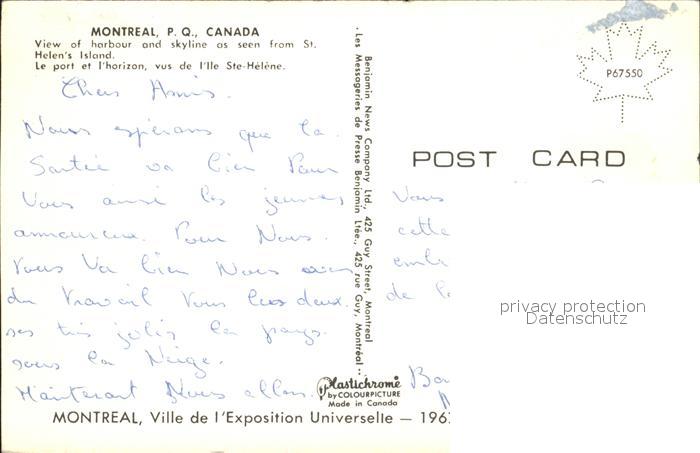 MONTREAL, P. Q., CANADA
View of harbour and skyline as seen from St.
Helen's Island.
Le port et l'horizon, vus de l'Ile Ste-Hélène.
Chers Amis.
Nous espérons que la
Santée va bien Pour
Vous ainsi les jeunes
amoureux. Pour Nous.
tous Va bien Nous avons
du travail tous les deux.
ses très jolis le pays.
sous la Neige.
Maintenant Nous allons
Benjamin News Company Ltd., 425 Guy Street, Montreal
Les Messageries de Presse Benjamin Ltée., 425 rue Guy, Montréal
P67550
POST CARD
Vous
cette
de
privacy protection
Datenschutz
Plastichrome
by COLOURPICTURE
Made in Canada
MONTREAL, Ville de l'Exposition Universelle — 196